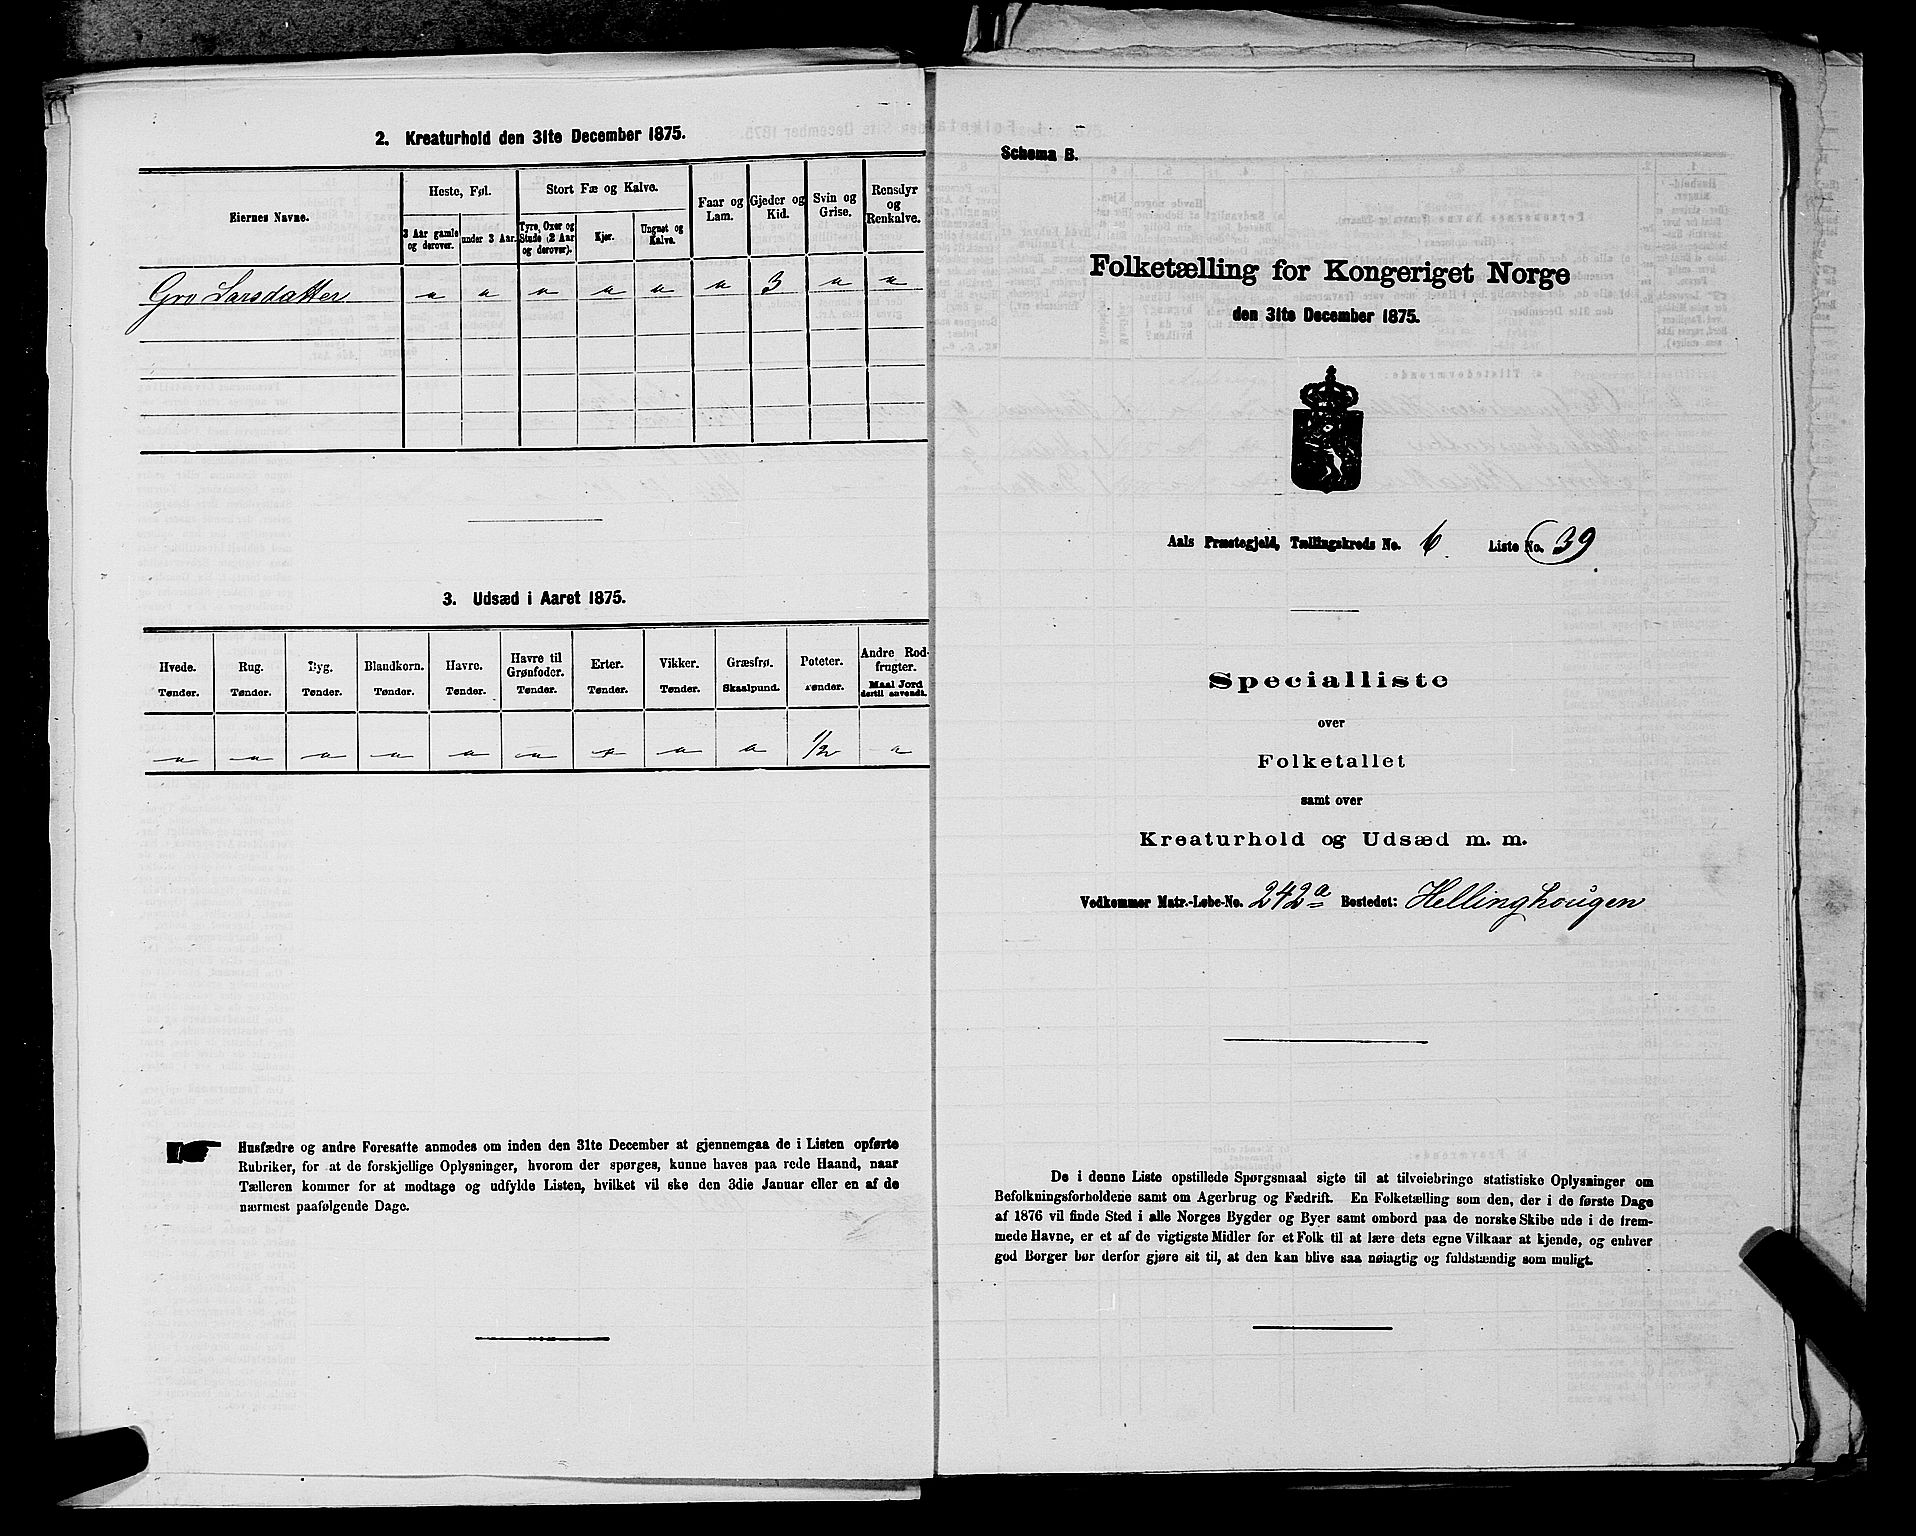 2. Kreaturhold den 31te December 1875.
Eiernes Navne.
Heste, Føl.
3 Aar gamle og derover.
under 3 Aar.
Stort Fæ og Kalve.
Tyre, Oxer og Stude (2 Aar og derover).
Kjør.
Ungnøt og Kalve.
Faar og Lam.
Gjeder og Kid.
Svin og Grise.
Rensdyr og Renkalve.
Gro Larsdatter " " " " " " 3 " "
3. Udsæd i Aaret 1875.
Hvede. Tønder.
Rug. Tønder.
Byg. Tønder.
Blandkorn. Tønder.
Havre. Tønder.
Havre til Grønfoder. Tønder.
Erter. Tønder.
Vikker. Tønder.
Græsfrø. Skaalpund.
Poteter. Tønder.
Andre Rodfrugter. Maal Jord dertil anvendt.
" " " " " " " " " 1/2 "
Husfædre og andre Foresatte anmodes om inden den 31te December at gjennemgaa de i Listen opførte
Rubriker, for at de forskjellige Oplysninger, hvorom der spørges, kunne haves paa rede Haand, naar
Tælleren kommer for at modtage og udfylde Listen, hvilket vil ske den 3die Januar eller en af de
nærmest paafølgende Dage.
Schema B.
Folketælling for Kongeriget Norge
den 31te December 1875.
Aals Præstegjeld, Tællingskreds No. 6. Liste No. 39.
Specialliste
over
Folketallet
samt over
Kreaturhold og Udsæd m. m.
Vedkommer Matr.-Løbe-No. 242a Bostedet: Hellinghougen
De i denne Liste opstillede Spørgsmaal sigte til at tilveiebringe statistiske Oplysninger om
Befolkningsforholdene samt om Agerbrug og Fædrift. En Folketælling som den, der i de første Dage
af 1876 vil finde Sted i alle Norges Bygder og Byer samt ombord paa de norske Skibe ude i de frem-
mede Havne, er et af de vigtigste Midler for et Folk til at lære dets egne Vilkaar at kjende, og enhver
god Borger bør derfor gjøre sit til, at den kan blive saa nøiagtig og fuldstændig som muligt.